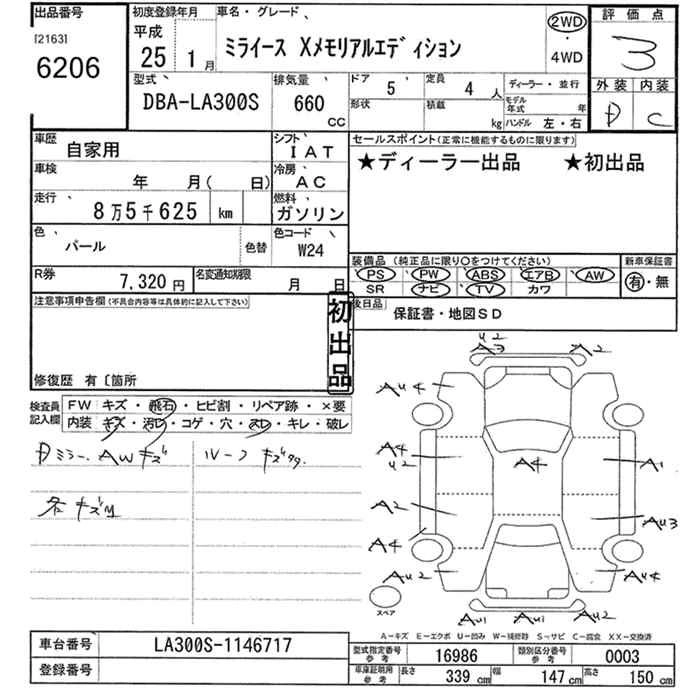 出品番号
[2163]
6206
初度登録年月
平成
25 1月
車名・グレード
ミライース Xメモリアルエディション
2WD
・
4WD
評価点
3
外装 内装
D C
型式
DBA-LA300S
排気量
660
cc
ドア 5
定員 4人
形状
積載 kg
ディーラー・並行
モデル年式 年
ハンドル 左・右
車歴 自家用
シフト IAT
車検 年 月( 日)
冷房 AC
走行 8万5千625 km
燃料 ガソリン
色 パール
色替
色コード W24
R券 7,320円
名変通知期限 月 日
セールスポイント(正常に機能するものに限ります)
★ディーラー出品 ★初出品
装備品(純正品に限り○をつけてください)
PS PW ABS エアB AW
SR ナビ TV カワ
新車保証書
有・無
後日品 保証書・地図SD
注意事項申告欄(不具合内容等は具体的に記入して下さい)
初出品
修復歴 有〔箇所
検査員記入欄
FW キズ・飛石・ヒビ割・リペア跡・×要
内装 キズ・汚レ・コゲ・穴・スレ・キレ・破レ
Dミラー、AWキズ
ルーフ キズ
各キズ凹
U2
A3
A2
AU4
A4
U2
A4
A1
A2
AU3
A4
AU2
AU4
スペア
AU1
AU1
AU2
A-キズ E-エクボ U-凹み W-補修跡 S-サビ C-腐食 XX-交換済
車台番号 LA300S-1146717
登録番号
型式指定番号 参考 16986
類別区分番号 参考 0003
車庫証明用 参考 長さ 339cm 幅 147cm 高さ 150cm